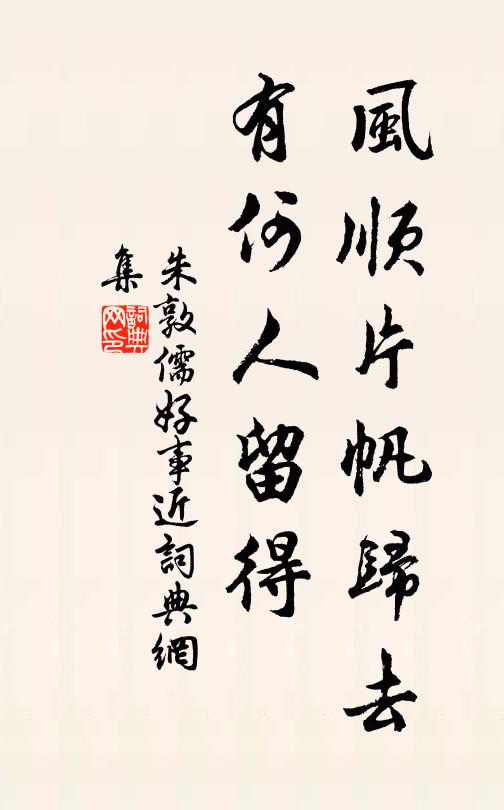 風順片帆歸去
有何人留得
朱敦儒好事近詞典網
集
詞典
网印